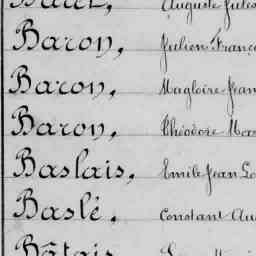 Auguste Jules
Baron, Julien Franço
Baron, Magloire Jean
Baron, Théodore Mar
Baslais, Emile Jean Lo
Baslé, Constant Au
Bâtais